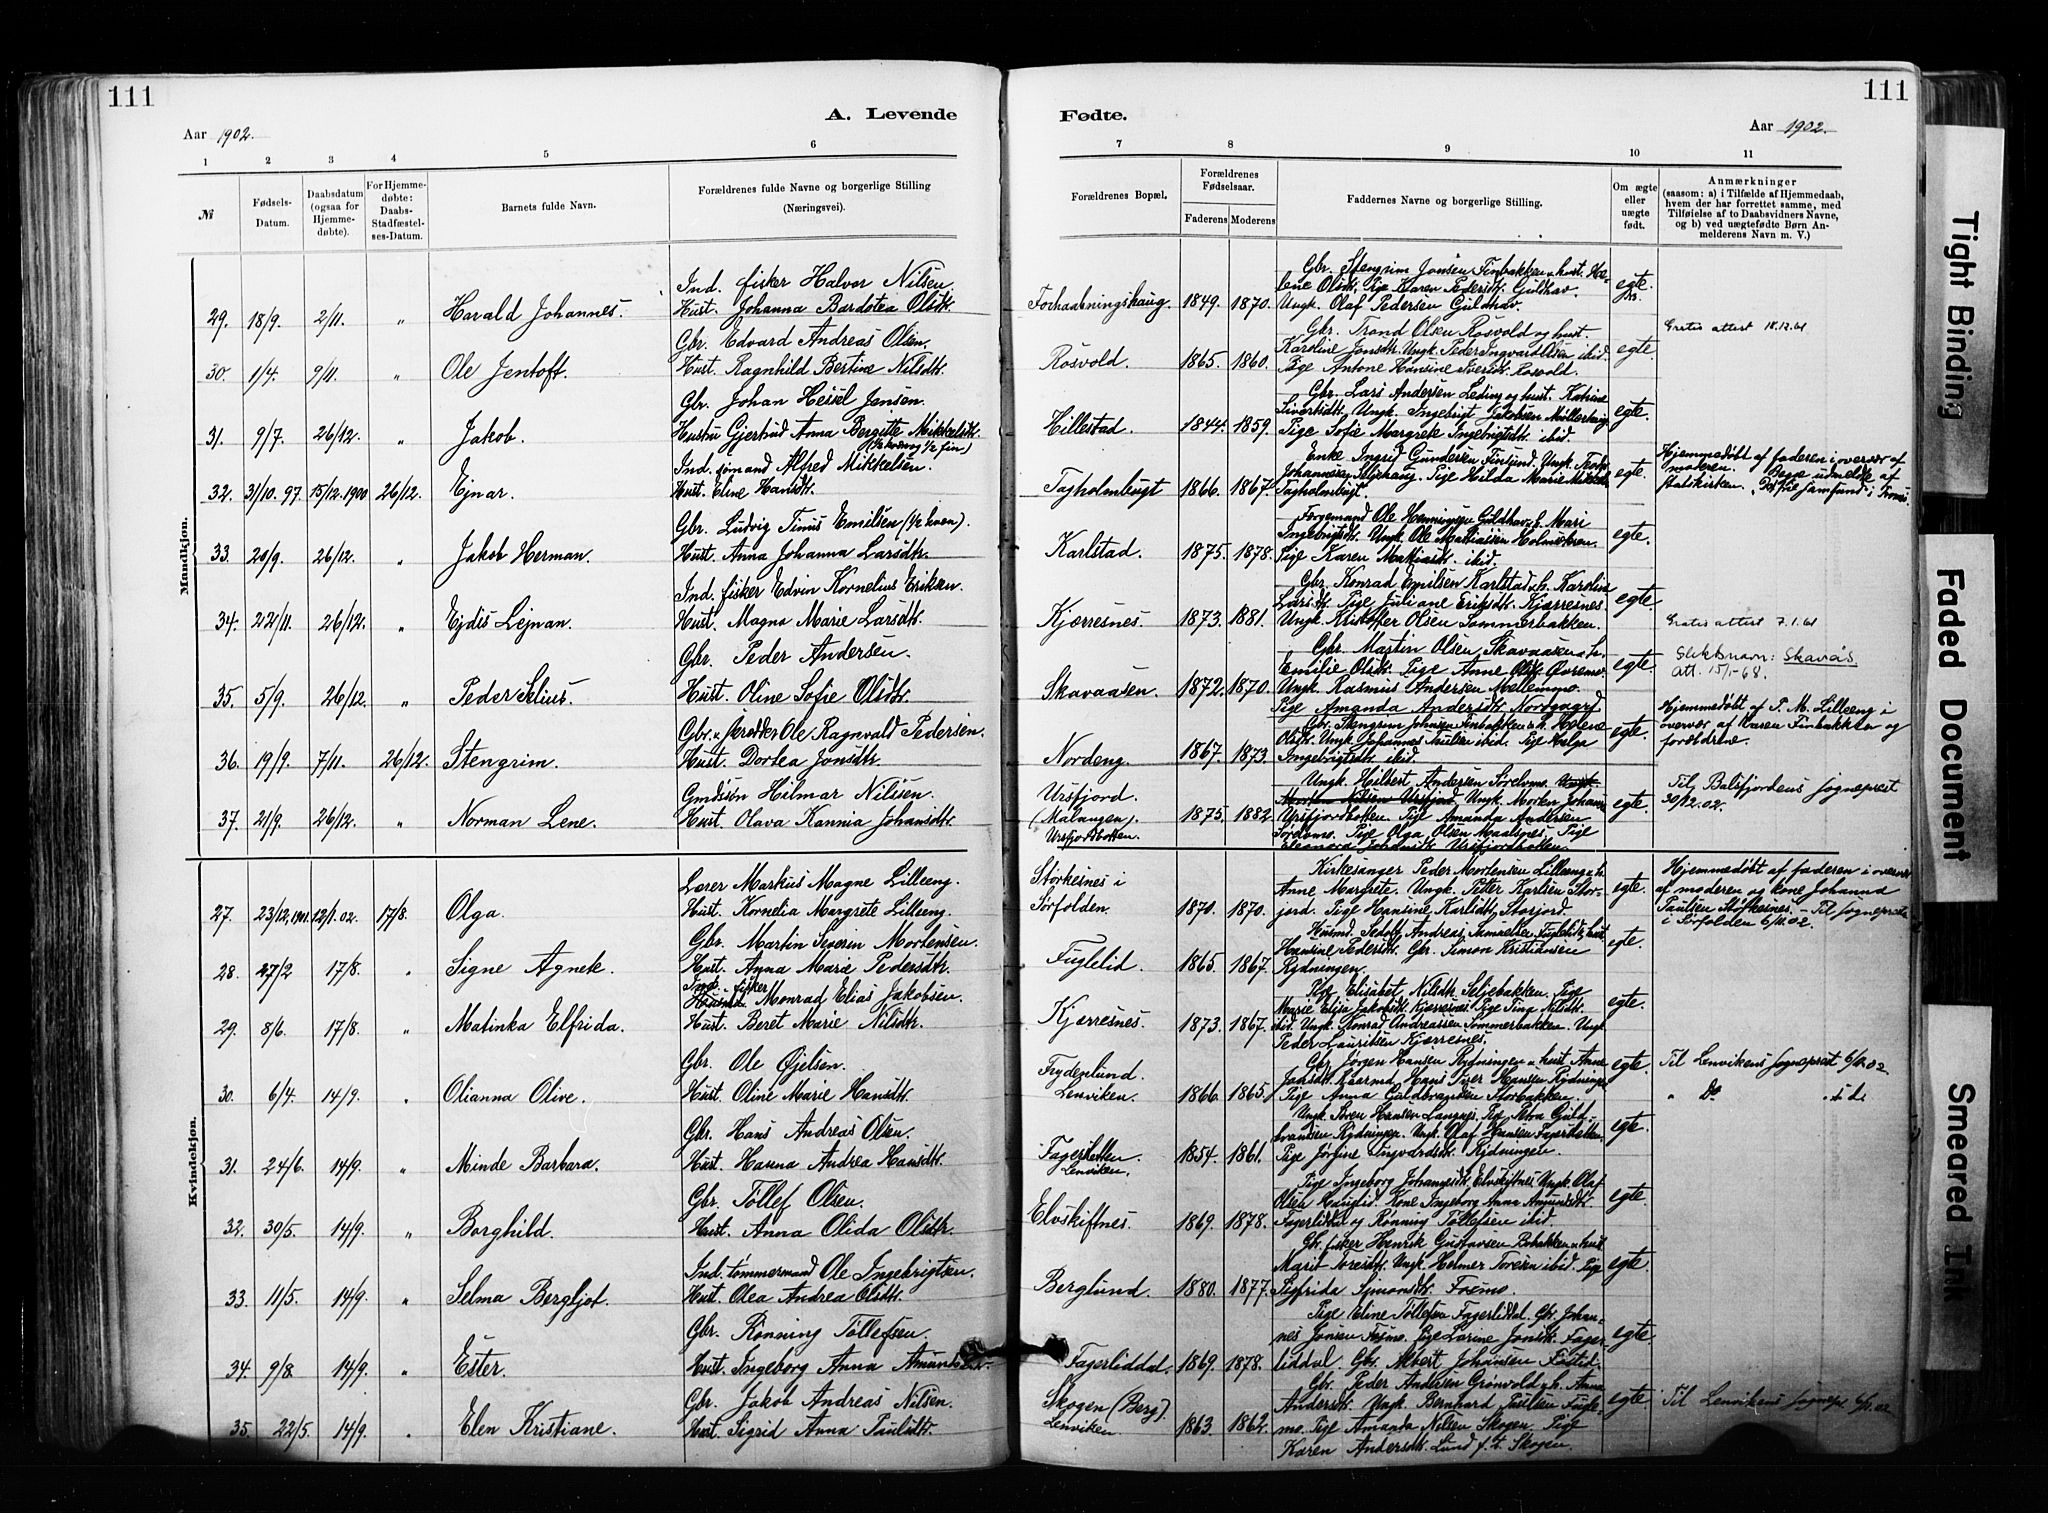 111
A. Levende
Fødte.
111
Aar 1902.
Aar 1902.
1 2 3 4 5 6 7 8 9 10 11
№
Fødsels-
Datum.
Daabsdatum
(ogsaa for
Hjemme-
døbte).
For Hjemme-
døbte:
Daabs-
Stadfæstel-
ses-Datum.
Barnets fulde Navn.
Forældrenes fulde Navne og borgerlige Stilling
(Næringsvei).
Forældrenes Bopæl.
Forældrenes
Fødselsaar.
Faderens Moderens
Faddernes Navne og borgerlige Stilling.
Om ægte
eller
uægte
født.
Anmærkninger
(saasom: a) i Tilfælde af Hjemmedaab,
hvem der har forrettet samme, med
Tilføielse af to Daabsvidners Navne,
og b) ved uægtefødte Børn An-
melderens Navn m. V.)
Mandkjøn.
29. 18/9. 2/11. " Harald Johannes.
Ind. fisker Halvor Nilsen.
Hust. Johanna Bardotea Olsdtr.
Forhaabningshaug. 1849. 1870.
Gbr. Stengrim Jonsen Finbakken o. hust. He-
lene Olsdtr. Pige Karen Pedersdtr. Guldhav.
Ungk. Olaf Pedersen Guldhav.
egte.
Gratis attest 18.12.61
30. 1/4. 9/11. " Ole Jentoft.
Gbr. Edvard Andreas Olsen.
Hust. Ragnhild Bertine Nilsdtr.
Rosvold. 1865. 1860.
Gbr. Trond Olsen Rosvold og hust.
Karoline Jonsdtr. Ungk. Peder Ingvard Olsen ibid.
Pige Antone Hansine Rosvold.
egte.
31. 9/7. 26/12. " Jakob.
Gbr. Johan Hessel Jensen.
Hustru Gjertrud Anna Bergitte Mikkelsdtr.
(1/2 kvæn og 1/2 fin)
Hillestad. 1844. 1859.
Gbr. Lars Andersen Leding og hust. Katrine
Sivertsdtr. Ungk. Ingebrigt Jakobsen
Pige Sofie Margrete Ingebrigtsdtr. ibid.
egte.
32. 31/10. 97. 15/12. 1900 26/12. Ejnar.
Ind. sømand Alfred Mikkelsen.
Hust. Eline Hansdtr.
Tagholmbugt 1866. 1867.
Enke Ingrid Gundersen Finlund. Ungk.
Johannesen Pige Hilda Marie
Tagholmbugt.
egte.
Hjemmedøbt af faderen i overvær af
moderen. Begge udmeldte af
statskirken. samfund i Tromsø
33. 20/9. 26/12. " Jakob Herman.
Gbr. Ludvig Tinus Emilsen (1/2 kvæn).
Hust. Anna Johanna Larsdtr.
Karlstad. 1875. 1878.
Færgemand Ole Henningsen Guldhav o. h. Mari
Ingebrigtsdtr. Ungk. Ole Mathiassen
Pige Karen Mathiasdtr. ibid.
egte.
34. 22/11. 26/12. " Ejdis Lejnan.
Ind. fisker Edvin Kornelius Eriksen.
Hust. Magna Marie Larsdtr.
Kjærresnes. 1873. 1881.
Gbr. Konrad Emilsen Karlstad o. h. Karoline
Larsdtr. Pige Juliane Eriksdtr. Kjærresnes.
Ungk. Kristoffer Olsen Sommerbakken.
egte.
Gratis attest 7.1.61
35. 5/9. 26/12. " Peder Selius.
Gbr. Peder Andersen.
Hust. Oline Sofie Olsdtr.
Skavaasen. 1872. 1870.
Gbr. Martin Olsen Skavaasen o. h.
Emilie Olsdtr. Pige Anne Olsdtr.
Ungk. Rasmus Andersen Mellemmo.
Pige Amanda Andersdtr.
egte.
Slektsnavn: Skavås
att. 15/1-68.
36. 19/9. 7/11. 26/12. Stengrim.
Gbr. Ole Ragnvald Pedersen.
Hust. Dortea Jonsdtr.
Nordeng. 1867. 1873.
Gbr. Stengrim Johnsen Finbakken o. h. Helene
Olsdtr. Ungk. Johannes Paulsen ibid. Pige Helga
Ingebrigtsdtr. ibid.
egte.
Hjemmedøbt af P. M. Lilleeng i
overvær af Karen Finbakken og
forældrene.
37. 21/9. 26/12. " Norman Lene.
Gmdssøn Hilmar Nilssen.
Hust. Olava Kannia Johansdtr.
Ursfjord.
(Malangen).
Ursfjordbotten.
1875. 1882
Ungk. Hilbert Andersen Sørelvmo.
Morten Nilsen Ursfjord. Ungk. Morten
Ursfjordbotten. Pige Amanda Andersen
Sørelvmo. Pige Olga Olsen Maalsnes. Pige
Eleonora Johansdtr. Ursfjordbotten.
egte.
Til Balsfjordens sogneprest
30/12.02.
Kvindekjøn.
27. 23/12. 1901. 12/1. 02. 17/8. Olga.
Lærer Markus Magne Lilleeng.
Hust. Kornelia Margrete Lilleeng.
Størkesnes i
Sørfolden.
1870. 1870.
Kirkesanger Peder Mortensen Lilleeng o. h.
Anne Margrete. Ungk. Petter Karlsen Stor-
jord. Pige Hansine Karlsdtr. Storjord.
egte.
Hjemmedøbt af faderen i overvær
af moderen og kone Johanna
Paulsen Størkesnes. Til sogneprest
i Sørfolden 6/11.02.
28. 27/2 17/8. " Signe Agnek.
Gbr. Martin Severin Mortensen.
Hust. Anna Marie Pedersdtr.
Fuglelid. 1865. 1867.
Husmd. Andreas Samuelsen Fuglelid o. hust.
Hansine Pedersdtr. Gbr. Simon Kristiansen
Rydningen.
egte.
29. 8/6. 17/8. " Matinka Elfrida.
Ind. fisker
Monrad Elias Jakobsen.
Hust. Beret Marie Nilsdtr.
Kjærresnes. 1873. 1867.
Pige Elisabet Nilsdtr. Seljebakken. Pige
Marie Elisa Jakobsdtr. Kjærresnes. Pige Tina Nilsdtr.
ibid. Ungk. Konrad Andreassen Sommerbakken. Ungk.
Peder Lauritsen Kjærresnes.
egte.
30. 6/4. 14/9. " Olianna Olive.
Gbr. Ole Øjelsen.
Hust. Oline Marie Hansdtr.
Frydenlund.
Lenviken.
1866. 1865.
Gbr. Jørgen Hansen Rydningen o. hust. Anne
Hans Hansen Rydningen
Pige Anna Guldbrandsen Storbakken.
egte.
Til Lenvikens sogneprest 6/11.02
31. 24/6. 14/9. " Minde Barbara.
Gbr. Hans Andreas Olsen.
Hust. Hanna Andrea Hansdtr.
Fagerbotten.
Lenviken.
1854. 1861.
Ungk. Søren Hansen Langnes. Pige Petra Guld-
brandsen Rydningen. Ungk. Olaf Hansen
Pige Jørgine Ingvardsdtr. Rydningen.
egte.
" Do " "
32. 30/5. 14/9. " Borghild.
Gbr. Tøllef Olsen.
Hust. Anna Olida Olsdtr.
Elvskiftnes. 1869. 1878.
Pige Ingeborg Johannesdtr. Elvskiftnes. Ungk. Olaf
Olsen Hauglid. Kone Ingeborg Anna Amundsdtr.
Fagerliddal og Rønning Tøllefsen ibid.
egte.
33. 11/5. 14/9. " Selma Bergljot.
Ind. tømmermand Ole Ingebrigtsen.
Hust. Olea Andrea Olsdtr.
Berglund. 1880. 1877.
Gbr. fisker Henrik Gustavsen o. hust
Marit Toresdtr. Ungk. Helmer Toresen ibid. Pige
Sigfrida Simonsdtr. Fosmo.
egte.
34. 9/8. 14/9. " Ester.
Gbr. Rønning Tøllefsen.
Hust. Ingeborg Anna Amundsdtr.
Fagerliddal. 1869. 1878.
Pige Eline Tøllefsen Fagerliddal. Gbr. Johan-
nes Jonsen Fosmo. Pige Larine Jonsdtr. Fager-
liddal. Gbr. Albert Johansen
egte.
35. 22/5. 14/9. " Elen Kristiane.
Gbr. Jakob Andreas Nilsen.
Hust. Sigrid Anna Paulsdtr.
Skogen (Berg).
Lenviken.
1863. 1862.
Gbr. Peder Andersen Grønvold o. h. Anne
Andersdtr. Ungk. Bernhard Paulsen Fugle-
mo. Pige Amanda Nilsen Skogen. Pige
Karen Andersdtr. Lund f. t. Skogen.
egte
Til Lenvikens sognepr. 6/11.02
Tight Binding
Faded Document
Smeared Ink